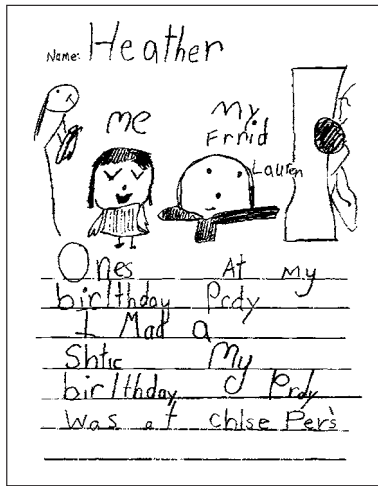 Name: Heather
me
My
Frnid
Lauren
Ones At My
birlthday Prdy
I Mad a
Shtic My
birlthday Prdy
was at Chlse Per's